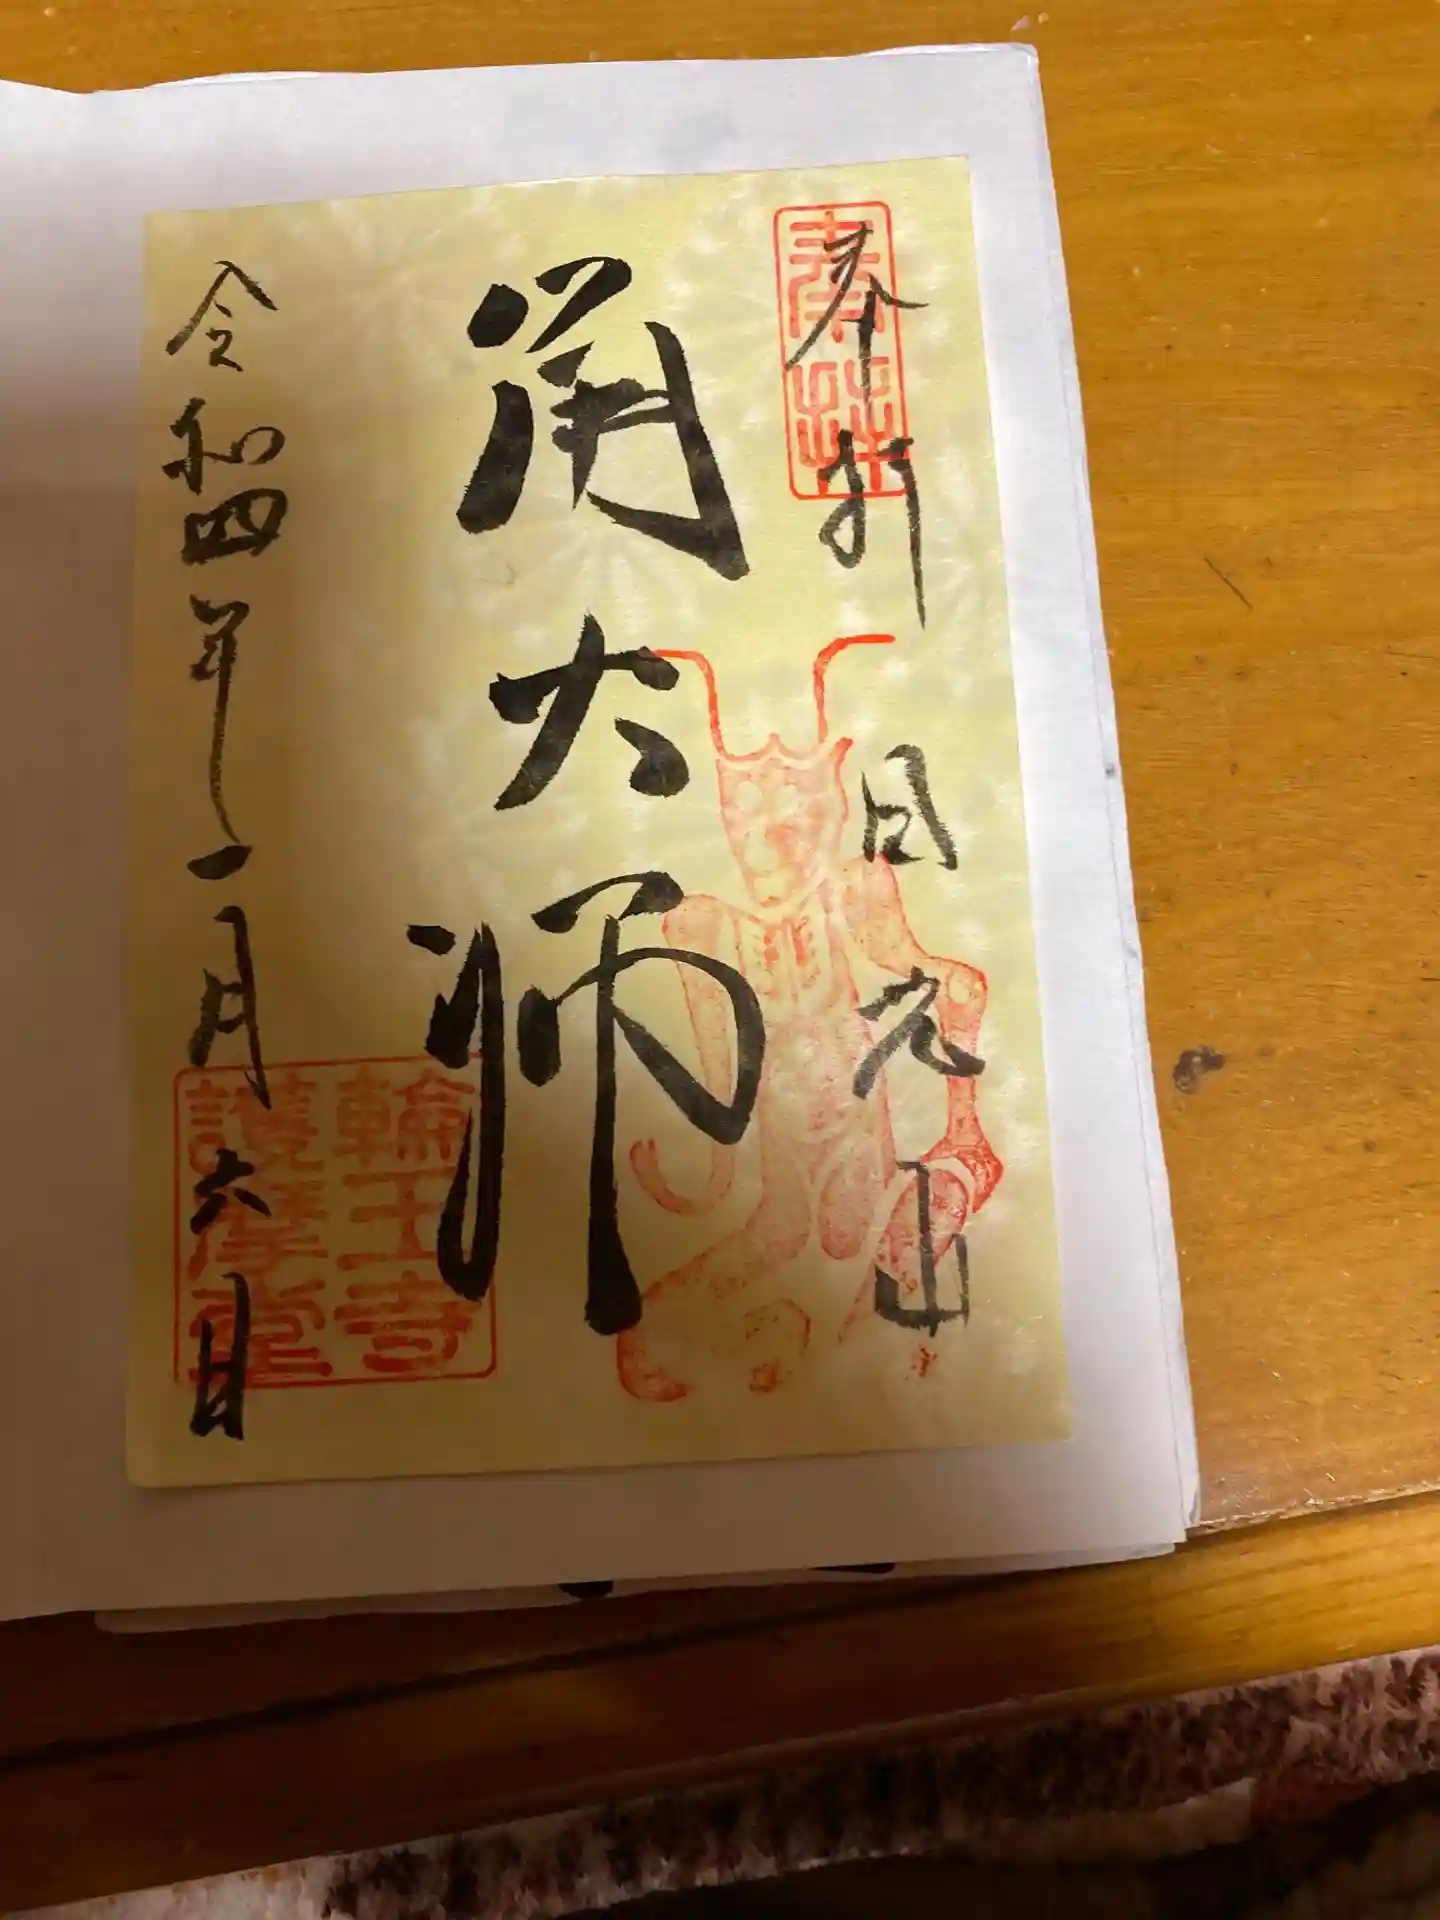 奉拝
奉拝
日光山
角大師
令和四年一月六日
輪王寺
護摩堂